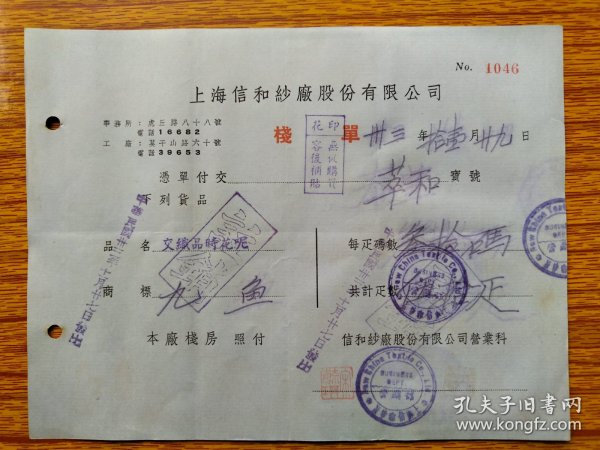 No. 1046
上海信和紗廠股份有限公司
事務所：虎丘路八十八號
電話 16682
工廠：莫干山路六十號
電話 39653
棧單
卅三年拾壹月廿九日
印花
無代購貨
容後補貼
憑單付交 萃和 寶號
下列貨品
品名 交織品時花呢
每疋碼數 叁拾碼
商標 九魚
共計疋數 疋
本廠棧房 照付
信和紗廠股份有限公司營業科
New China Textile Co., Ltd.
New China Textile Co., Ltd.
New China Textile Co., Ltd.
孔夫子旧书网
www.kongfz.com